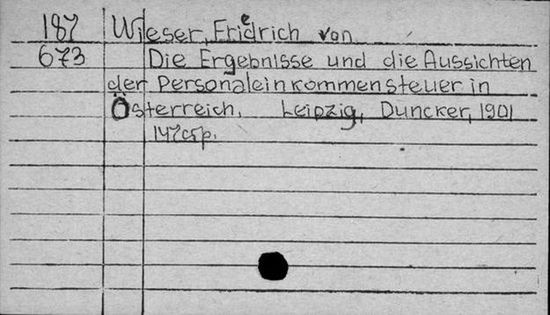 187 Wieser, Friedrich von
673 Die Ergebnisse und die Aussichten
der Personaleinkommensteuer in
Österreich. Leipzig, Duncker, 1901
147 csp.